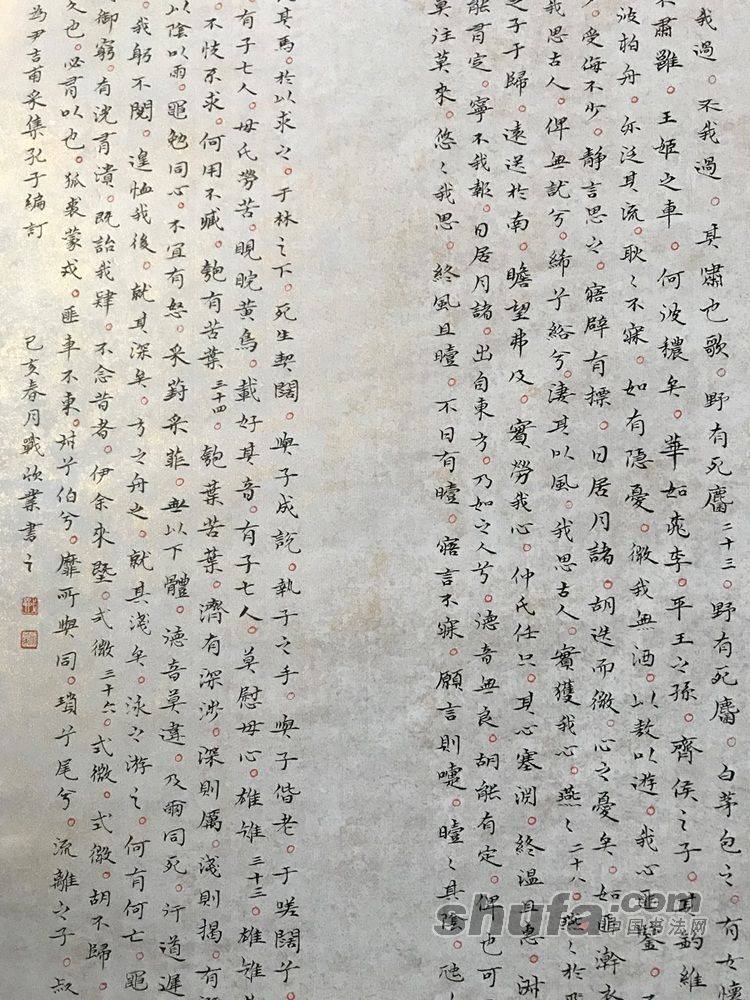 我過。不我過。其嘯也歌。野有死麕二十三。野有死麕。白茅包之。有女懷
不肅雖。王姬之車。何彼穠矣。華如桃李。平王之孫。齊侯之子。其釣維
彼柏舟。亦泛其流。耿々不寐。如有隱憂。微我無酒。以敖以遊。我心匪鑒。
受侮不少。靜言思之。寤辟有摽。日居月諸。胡迭而微。心之憂矣。如匪澣衣
我思古人。俾無訧兮。絺兮綌兮。淒其以風。我思古人。實獲我心。燕々二十八。燕々於飛
之子于歸。遠送於南。瞻望弗及。實勞我心。仲氏任只。其心塞淵。終溫且惠。淑
能有定。寧不我報。日居月諸。出自東方。乃如之人兮。德音無良。胡能有定。俾也可
莫往莫來。悠々我思。終風且曀。不日有曀。寤言不寐。願言則嚏。曀々其陰。虺々
其馬。於以求之。于林之下。死生契闊。與子成說。執子之手。與子偕老。于嗟闊兮。
有子七人。母氏勞苦。睍睆黃鳥。載好其音。有子七人。莫慰母心。雄雉三十三。雄雉
不忮不求。何用不臧。匏有苦葉三十四。匏葉苦葉。濟有深涉。深則厲。淺則揭。有
以陰以雨。黽勉同心。不宜有怒。采葑采菲。無以下體。德音莫違。及爾同死。行道遲
我躬不閱。遑恤我後。就其深矣。方之舟之。就其淺矣。泳之游之。何有何亡。黽
御窮。有洸有潰。既詒我肄。不念昔者。伊余來墍。式微三十六。式微。式微。胡不歸。
久也。必有以也。狐裘蒙戎。匪車不東。叔兮伯兮。靡所與同。瑣兮尾兮。流離之子。叔
為尹吉甫采集孔子編訂
己亥春月戰欣業書之
shufa.com
中国书法网